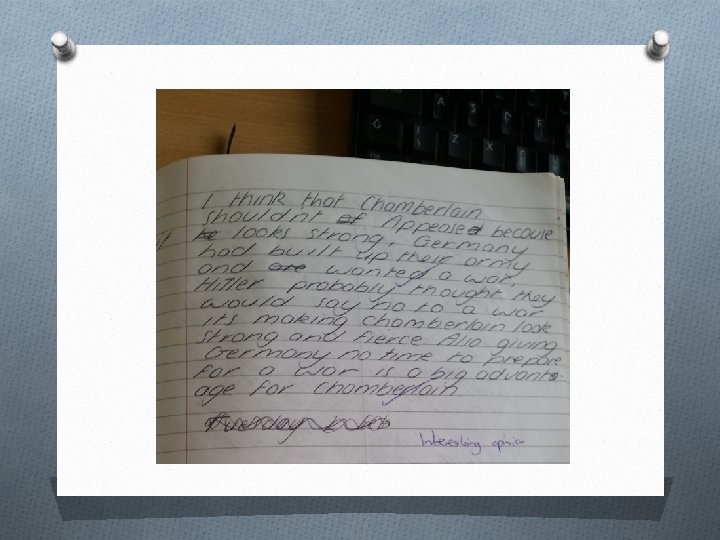 I think that Chamberlain
shouldnt of Appeased because
it he looks strong, Germany
had built up their army
and are wanted a war,
Hitler probably thought they
would say no to a war
its making chamberlain look
strong and fierce Also giving
Germany no time to prepare
for a war is a big advant
age for Chamberlain
Interesting opinion